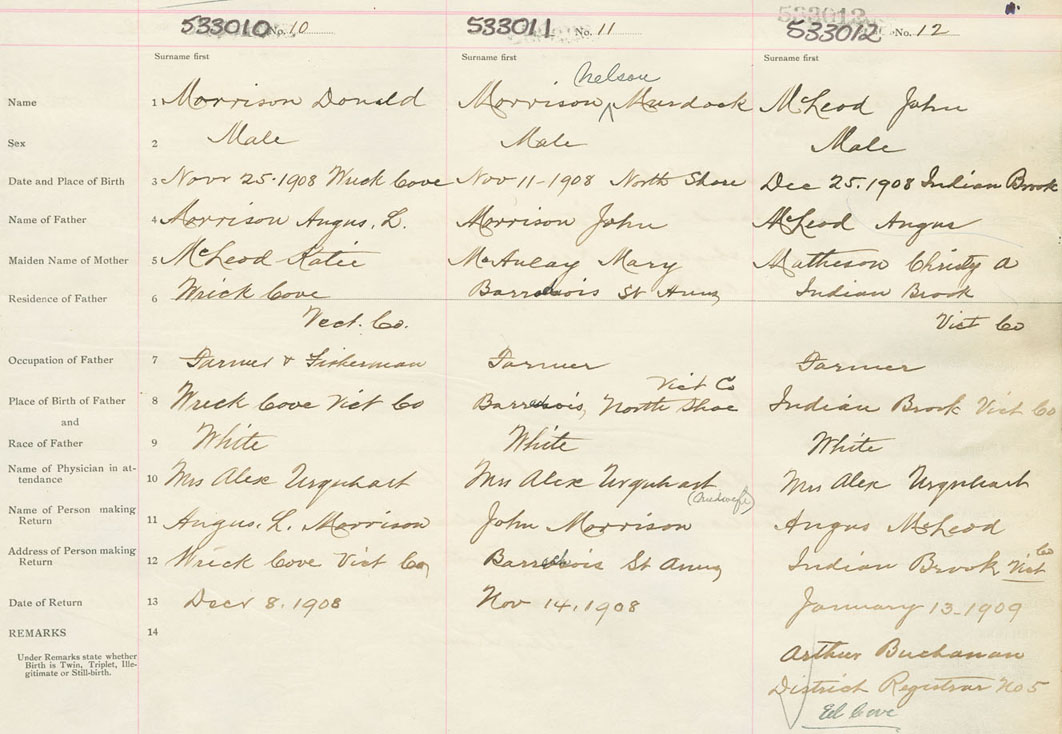 533010 No. 10 533011 No. 11 533012 No. 12
Surname first Surname first Surname first
Nelson
Name 1 Morrison Donald Morrison ^ Murdock McLeod John
Sex 2 Male Male Male
Date and Place of Birth 3 Novr 25.1908 Wreck Cove Nov 11-1908 North Shore Dec 25.1908 Indian Brook
Name of Father 4 Morrison Angus. L. Morrison John McLeod Angus
Maiden Name of Mother 5 McLeod Katie McAulay Mary Matheson Christy A
Residence of Father 6 Wrick Cove St Anns Indian Brook
Vict. Co. Vict Co
Occupation of Father 7 Farmer & Fisherman Farmer Farmer
Vict Co
Place of Birth of Father 8 Wreck Cove Vict Co North Shoe Indian Brook Vict Co
and
Race of Father 9 White White White
Name of Physician in at-
tendance 10 Mrs Alex Urquhart Mrs Alex Urquhart Mrs Alex Urquhart
Name of Person making
Return 11 Angus. L. Morrison John Morrison Angus McLeod
Address of Person making
Return 12 Wreck Cove Vict Co St Anns Indian Brook Vict Co
Date of Return 13 Decr 8.1908 Nov 14.1908 January 13-1909
REMARKS 14
Under Remarks state whether
Birth is Twin, Triplet, Ille-
gitimate or Still-birth.
Arthur Buchanan
District Registrar No 5